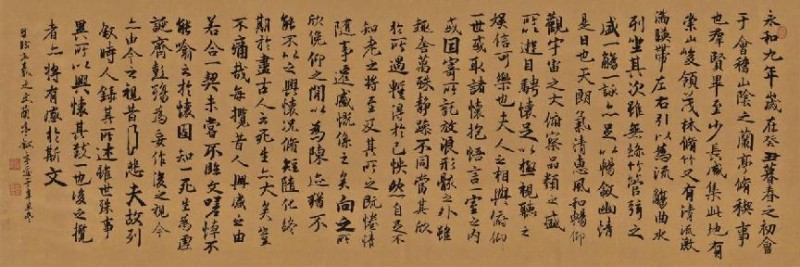 永和九年歲在癸丑暮春之初會
于會稽山陰之蘭亭脩稧事
也羣賢畢至少長咸集此地有
崇山峻領茂林脩竹又有清流激
湍暎帶左右引以為流觴曲水
列坐其次雖無絲竹管弦之
盛一觴一詠亦足以暢敘幽情
是日也天朗氣清惠風和暢仰
觀宇宙之大俯察品類之盛
所以遊目騁懷足以極視聽之
娛信可樂也夫人之相與俯仰
一世或取諸懷抱悟言一室之內
或因寄所託放浪形骸之外雖
趣舍萬殊靜躁不同當其欣
於所遇蹔得於己怏然自足不
知老之將至及其所之既惓情
隨事遷感慨係之矣向之所
欣俛仰之閒以為陳迹猶不
能不以之興懷況脩短隨化終
期於盡古人云死生亦大矣豈
不痛哉每攬昔人興感之由
若合一契未嘗不臨文嗟悼不
能喻之於懷固知一死生為虛
誕齊彭殤為妄作後之視今
亦由今之視昔悲夫故列
敘時人錄其所述雖世殊事
異所以興懷其致一也後之攬
者亦將有感於斯文